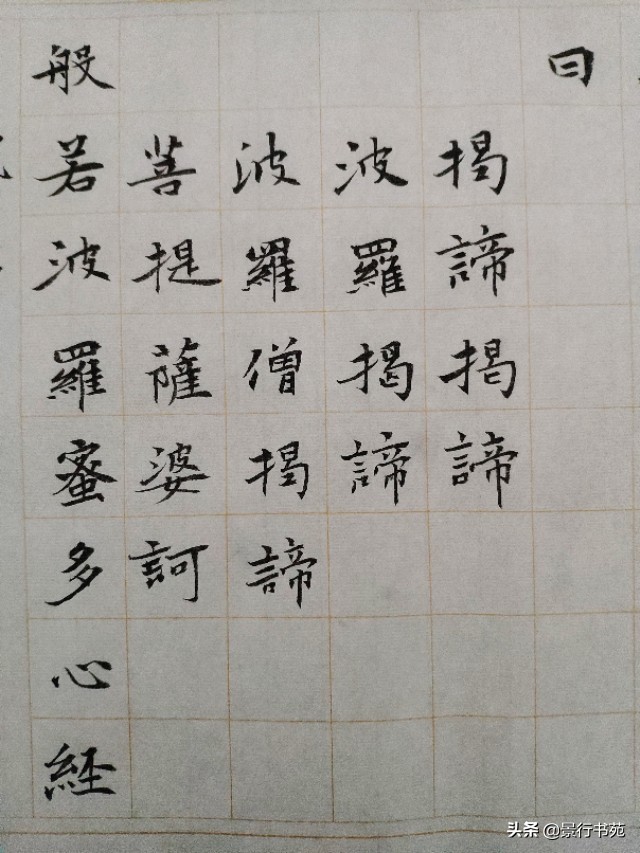 曰
揭諦揭諦
波羅揭諦
波羅僧揭諦
菩提薩婆訶
般若波羅蜜多心経
头条 @景行书苑